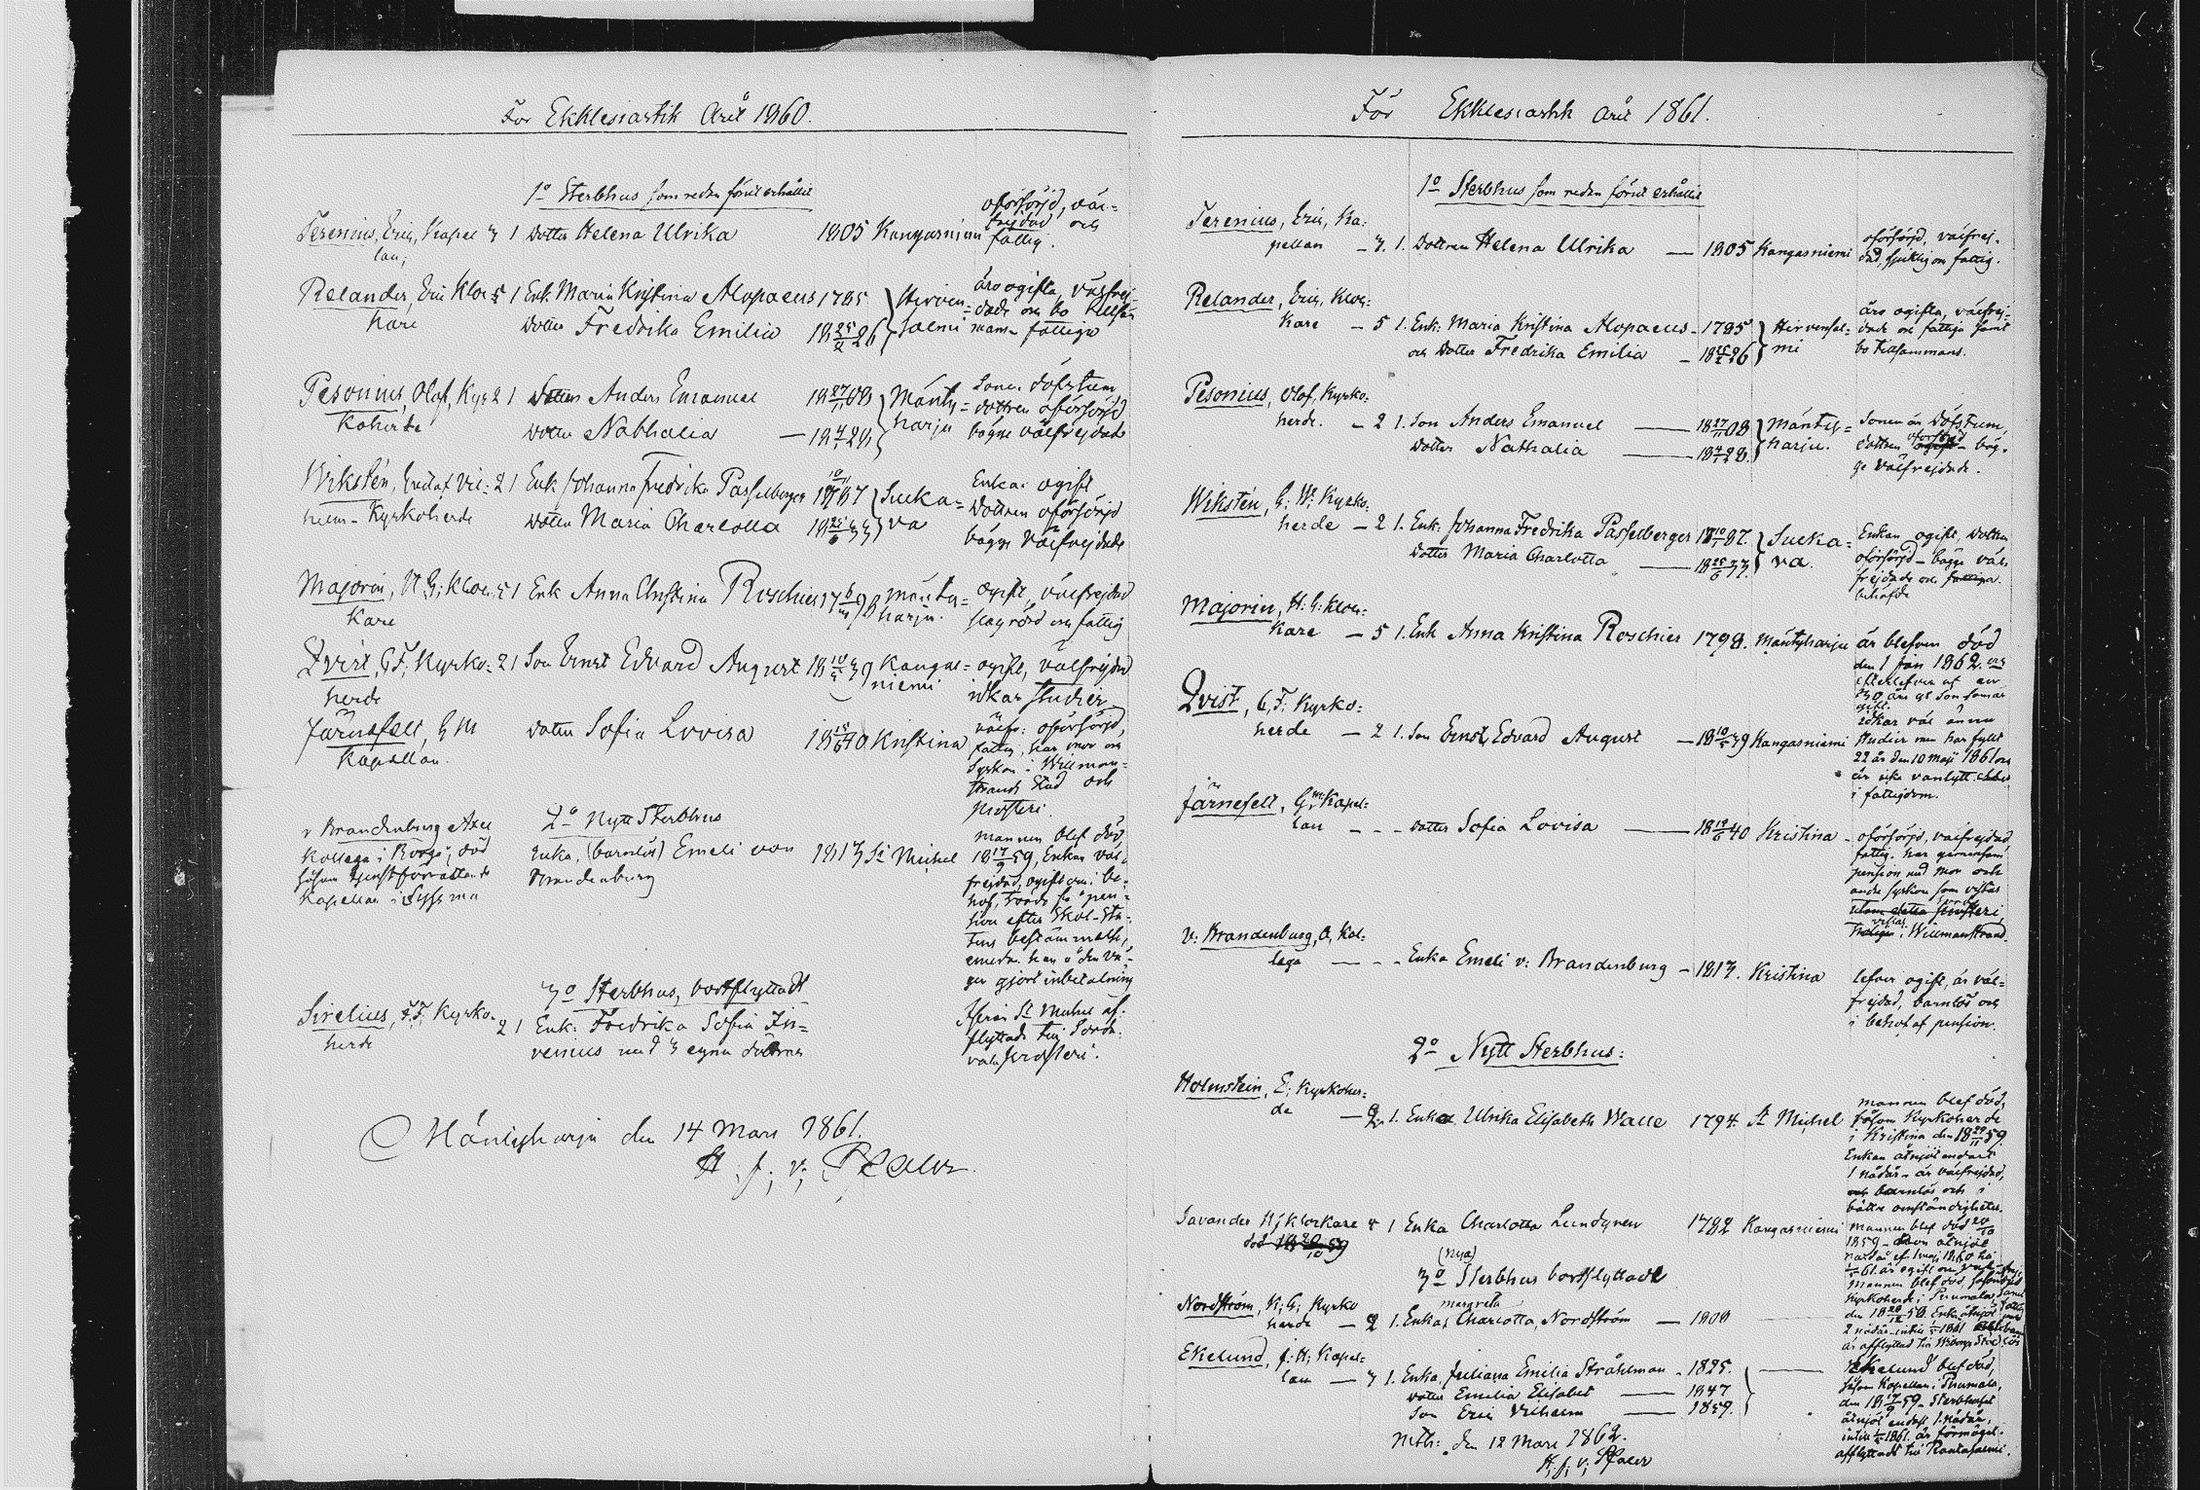 För Ekklesiastik Året 1860.
1o Sterbhus som redan förut erhållit
Terenius, Eric, Kapel 3 1 Dotter Helena Ulrika 1805 Kangasniemi
lan;
oförsörjd, väl=
frejdad och
fattig.
Relander, Eric Kloc= 5 1 Enk. Maria Kristina Alopaeus 1785
kare Dotter Fredrika Emilia 18 26
Hirven=
salmi
äro ogifta, välfrej=
dade och bo tillsam
mans fattiga
Pesonius, Olof, Kyr 2 1 Anders Emanuel 18 27/11 08
koherde Dotter Nathalia — 18 28
Mänty=
harju
Sonen döfstum
dottren oförsörjd
bägge välfrejdade
Wikstén, Gustaf Vil= 2 1 Enk Johanna Fredrika Passelberger 87
helm - Kyrkoherde Dotter Maria Charlotta 18 25/6 33
Sulka=
va
Enkan ogift
Dottren oförsörjd
bägge välfrejdade
Majorin, H. G; Kloc 5 1 Enk Anna Christina Roschier 17 98
kare
Mänty=
harju.
ogift, välfrejdad
slagrörd och fattig
Qvist, C. F; Kyrko= 2 1 Son Ernst Edvard August 18 10/5 39
herde
Kangas=
niemi
ogift, välfrejdad
idkar studier
Järnefelt, G M Dotter Sofia Lovisa 18 40 Kristina
Kapellan.
välfr: oförsörjd,
fattig, har mor och
syskon i Willman=
strands stad och
prosteri.
2o Nytt Sterbhus
v Brandenburg Axel
Kollega i Borgå; död
såsom tjenstförrättande
Kapellan i Sysmä
Enka, (barnlös) Emeli von
Brandenburg
1813 St Michel
mannen blef död
18 17/9 59, Enkan väl=
frejdad, ogift och i be=
hof, torde få pen=
sion efter Skol-Sta=
tens bestämmelse,
emedan han å den vä=
gen gjort inbetalning
3o Sterbhus, bortflyttadt
Sirelius, F. F; Kyrko= 2 1 Enk: Fredrika Sofia In=
herde venius med 3 egna döttrar
ifrån St Michel af=
flyttade till Sorda=
vala prosteri.
Mäntyharju den 14 Mars 1861.
H. J; v; Pfaler
För Ekklesiastik Året 1861.
1o Sterbhus som redan förut erhållit
Terenius, Eric, Ka=
pellan — 3. 1. Dottren Helena Ulrika — 1805 Kangasniemi
oförsörjd, välfrej=
dad, sjuklig och fattig.
Relander, Eric, Kloc=
kare — 5 1. Enk: Maria Kristina Alopaeus - 1785
och Dotter Fredrika Emilia — 18 26
Hirvensal=
mi
äro ogifta, välfrej=
dade och fattiga samt
bo tillsammans.
Pesonius, Olof, Kyrko=
herde. — 2 1. Son Anders Emanuel — 18 27/11 08
Dotter Nathalia — 18 28.
Mänty=
harju.
Sonen är Döfstum,
dottren oförsörjd - bäg=
ge välfrejdade.
Wikstén, G: W: Kyrko=
herde — 2 1. Enk: Johanna Fredrika Passelberger 87.
Dotter Maria Charlotta — 18 25/6 33.
Sulka=
va.
Enkan ogift, Dottren
oförsörjd - bägge väl=
frejdade och fattiga.
behöfde
Majorin, H: G: Kloc=
kare — 5 1. Enk Anna Kristina Roschier 1798. Mäntyharju
är blefven död
den 1 Jan 1862 och
efterlefves af en
30 års gl son som är
gift.
Qvist, C. F; Kyrko=
herde — 2 1. Son Ernst Edvard August — 18 10/5 39 Kangasniemi
idkar väl ännu
studier men har fyllt
22 år den 10 Maji 1861 och
är icke vanlytt
i fattigdom.
Järnefelt, G. M. Kapel=
lan - - - Dotter Sofia Lovisa — 18 40 Kristina
oförsörjd, välfrejdad,
fattig. har gemensam
pension med mor och
andra syskon som vistas
i Willmanstrand.
v: Brandenburg, A, Kol=
lega — - - Enka Emeli v: Brandenburg - 1813. Kristina
lefver ogift, är väl=
frejdad, barnlös och
i behof af pension.
2o Nytt Sterbhus:
Holmstein, E; Kyrkoher=
de — 2. 1. Enka Ulrika Elisabeth Walle 1794 St Michel
mannen blef död,
såsom Kyrkoherde
i Kristina den 18 29/11 59.
Enkan åtnjöt endast
1 nådår - är välfrejdad,
och barnlös och i
bättre omständigheter.
Savander H; J Klockare 4 1 Enka Charlotta Lundgren 1782 Kangasniemi
död 18 20/10 59
mannen blef död 20/10
1859
(nya)
3o Sterbhus bortflyttadt
Nordström, K; G; Kyrko
herde — 2 1. Enkas Charlotta, Nordström — 1800
margreta
mannen blef död, såsom
Kyrkoherde i Puumala,
Ekelund, J: H; Kapel=
lan — 3 1. Enka, Juliana Emilia Stråhlman - 1825.
Dotter Emilia Elisabet — 1847
Son Eric Vilhelm — 1859.
Ekelund blef död,
såsom Kapellan i Puumala,
den 18 17/9 59 - Sterbhuset
åtnjöt endast 1 nådår,
intill 1861. är förmöget.
afflyttadt till Rantasalmi.
Mth: den 12 Mars 1862.
H; J; v; Pfaler